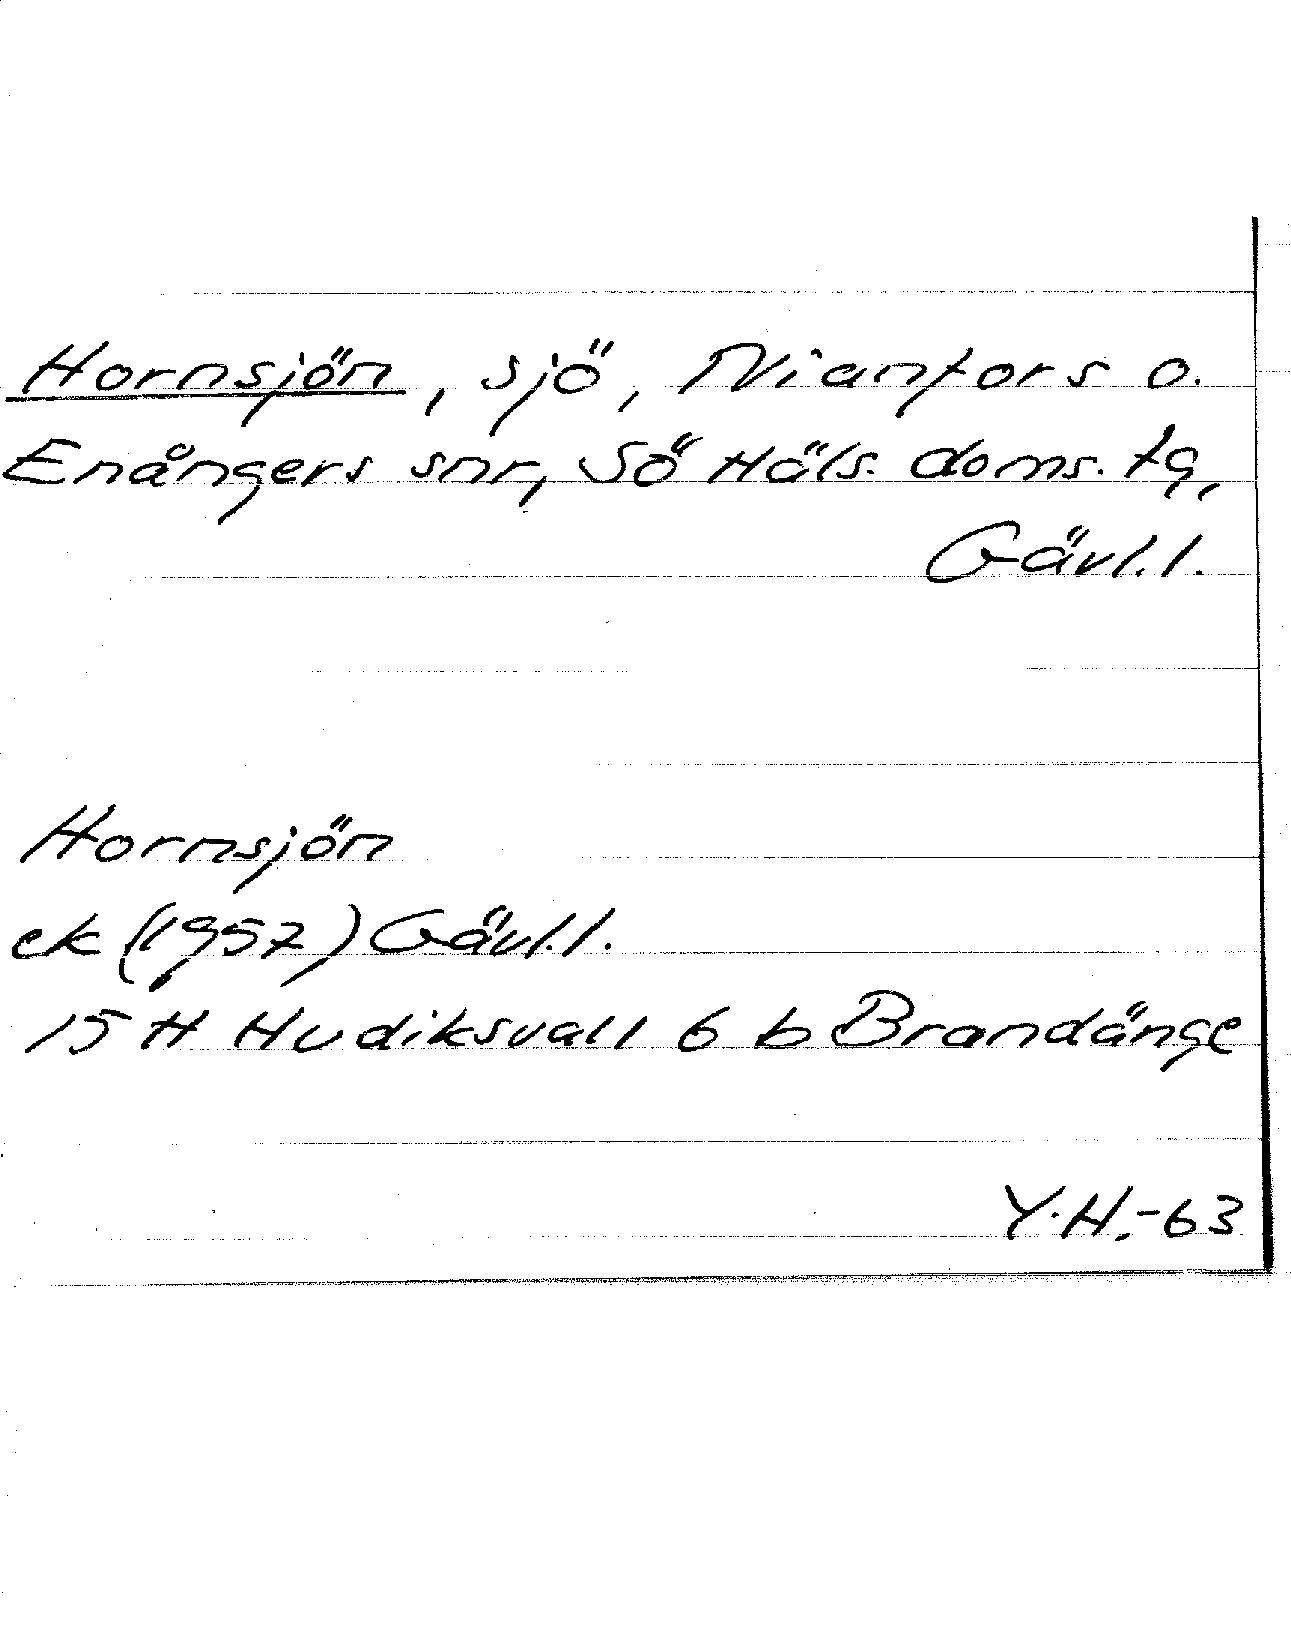 Hornsjön, sjö, Nianfors o.
Enångers snr, Sö Häls. doms. tg,
Gävl. l.
Hornsjön
ek (1957) Gävl. l.
15 H Hudiksvall 6 b Brandänge
Y.H.-63